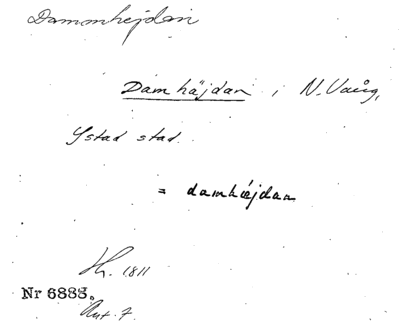 Dammhejdan
Dam häjdan i N. Vång,
Ystad stad.
= damhäjdan
Hg. 1811
Nr 6883.
Ant. 7.